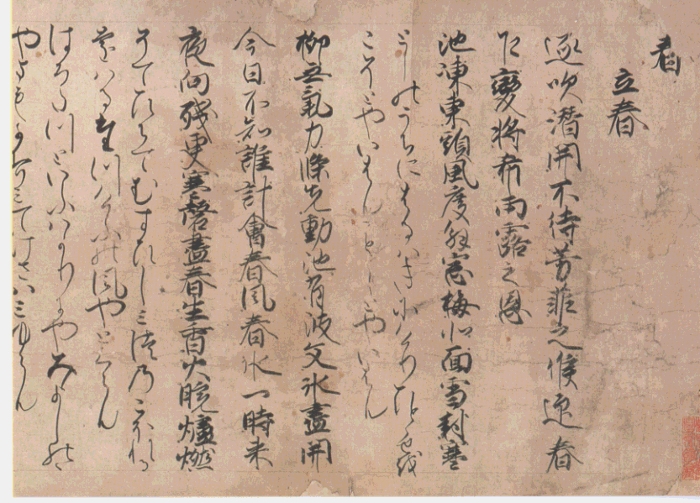 春
立春
逐吹潜開不待芳菲之候迎春
乍變将希雨露之恩
池凍東頭風度解窓梅北面雪封寒
としのうちにはるはきにけりひとゝせを
こそとやいはんことしとやいはん
柳無氣力條先動池有波文氷盡開
今日不知誰計會春風春水一時来
夜向残更寒磬盡春生香火暁爐燃
そてひちてむすひしみつのこほれる
をはるたつけふの風やとくらん
はるたつといふはかりにやみよしの
やまもかすみてけさはみゆらん